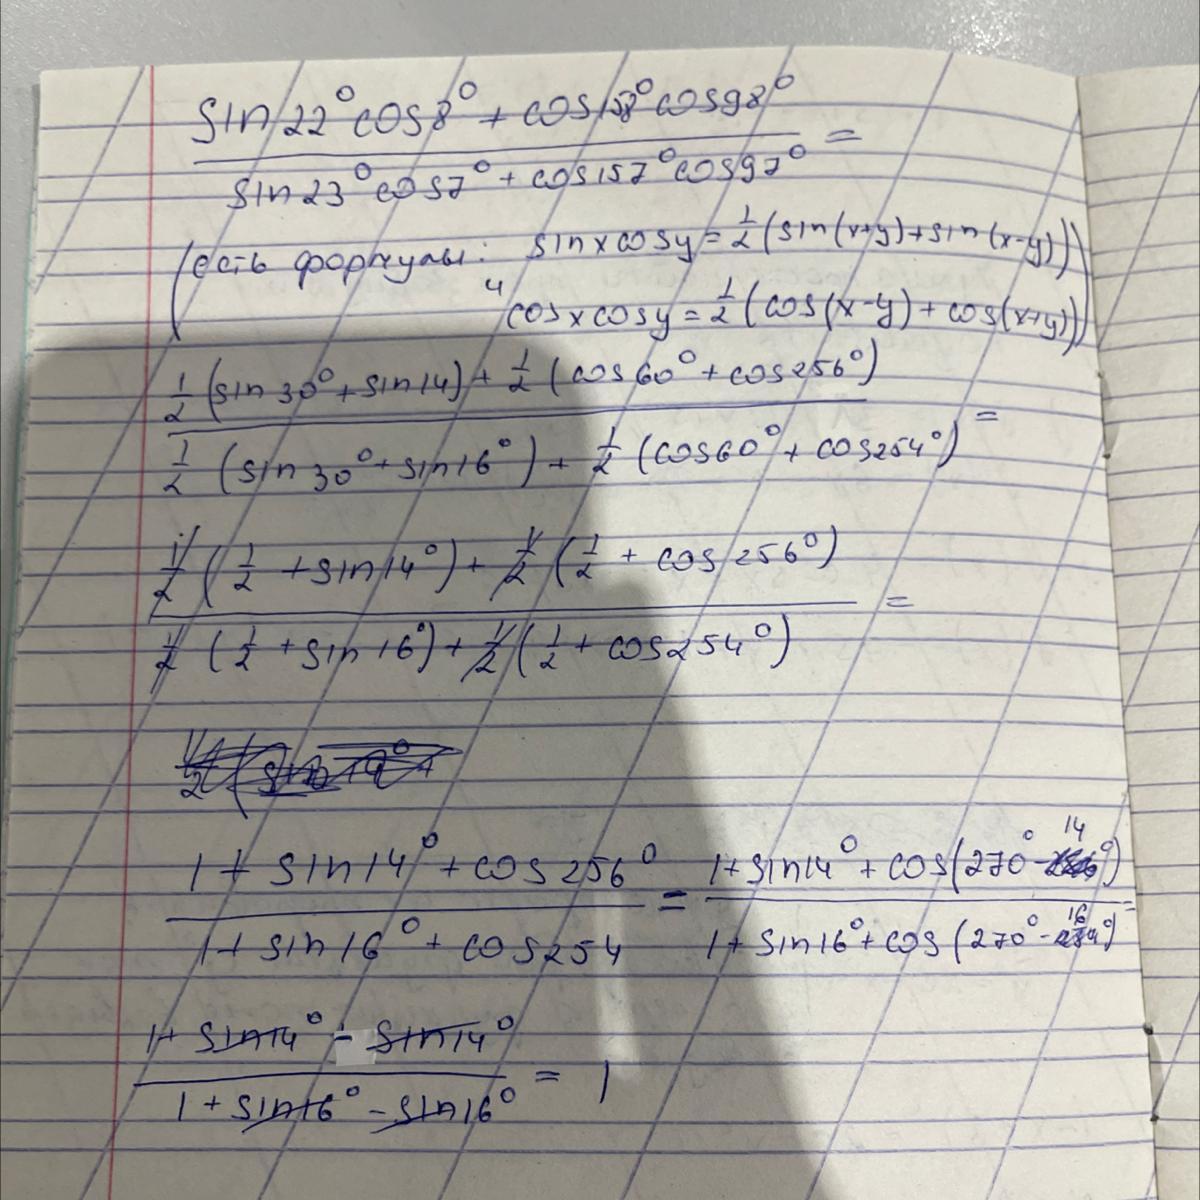 sin22° cos8° + cos158° cos98°
sin23° cos7° + cos157° cos97° =
(есть формулы: sin x cos y = 1/2 (sin(x+y) + sin(x-y))
и cos x cos y = 1/2 (cos(x-y) + cos(x+y)))
1/2 (sin 30° + sin14) + 1/2 (cos60° + cos256°)
1/2 (sin 30° + sin16°) + 1/2 (cos60° + cos254°) =
1/2 (1/2 + sin14°) + 1/2 (1/2 + cos 256°)
1/2 (1/2 + sin16°) + 1/2 (1/2 + cos254°) =
1 + sin14° + cos256° = 1 + sin14° + cos(270° - 14°)
1 + sin16° + cos254 1 + sin16° + cos(270° - 16°) =
1 + sin14° - sin14°
1 + sin16° - sin16° = 1